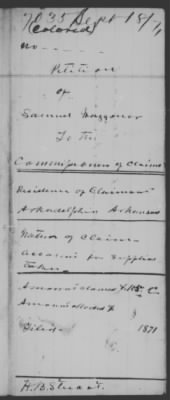 No 35 Sept 18/71
(Colored)
No
Petition
of
Samuel Waggoner
To the
Commissioners of Claims
Residence of Claimant
Arkadelphia Arkansas
Nature of Claim
Account for Supplies
taken
Amount claimed $
Amount allowed $
Filed 1871
H. B. Stuart.